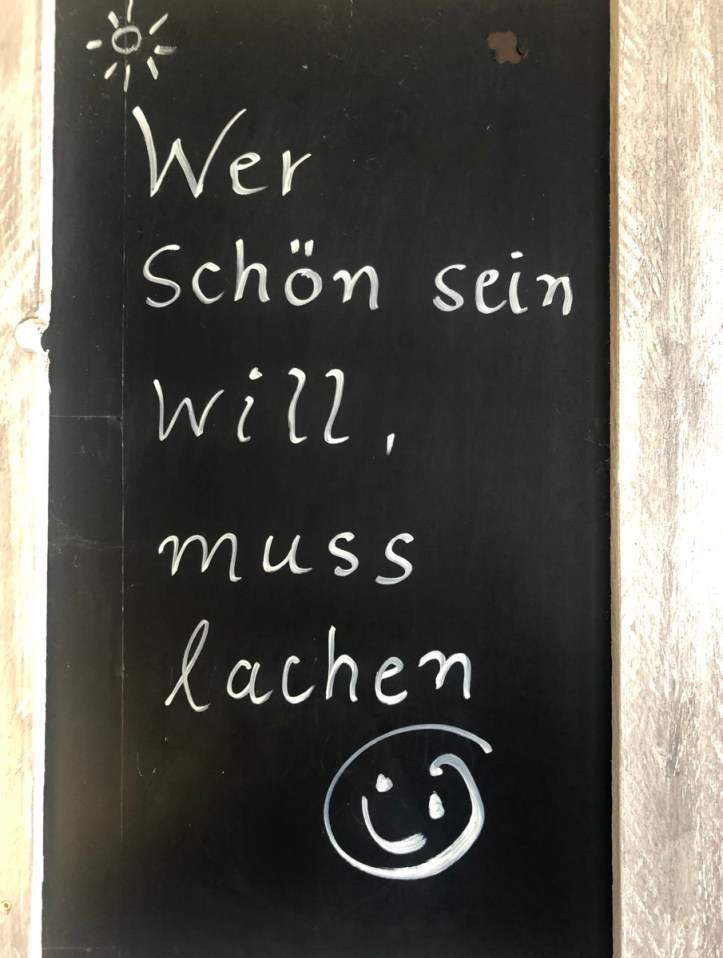 Wer
Schön sein
will,
muss
lachen